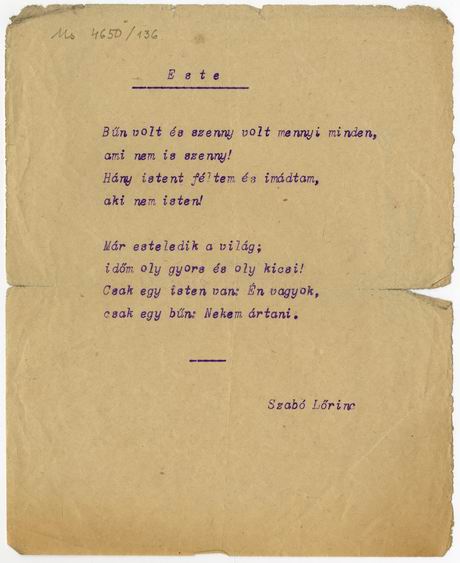 Ms 4650/136
Este
Bűn volt és szenny volt mennyi minden,
ami nem is szenny!
Hány istent féltem és imádtam,
aki nem isten!
Már esteledik a világ;
időm oly gyors és oly kicsi!
Csak egy isten van: Én vagyok,
csak egy bűn: Nekem ártani.
Szabó Lőrinc